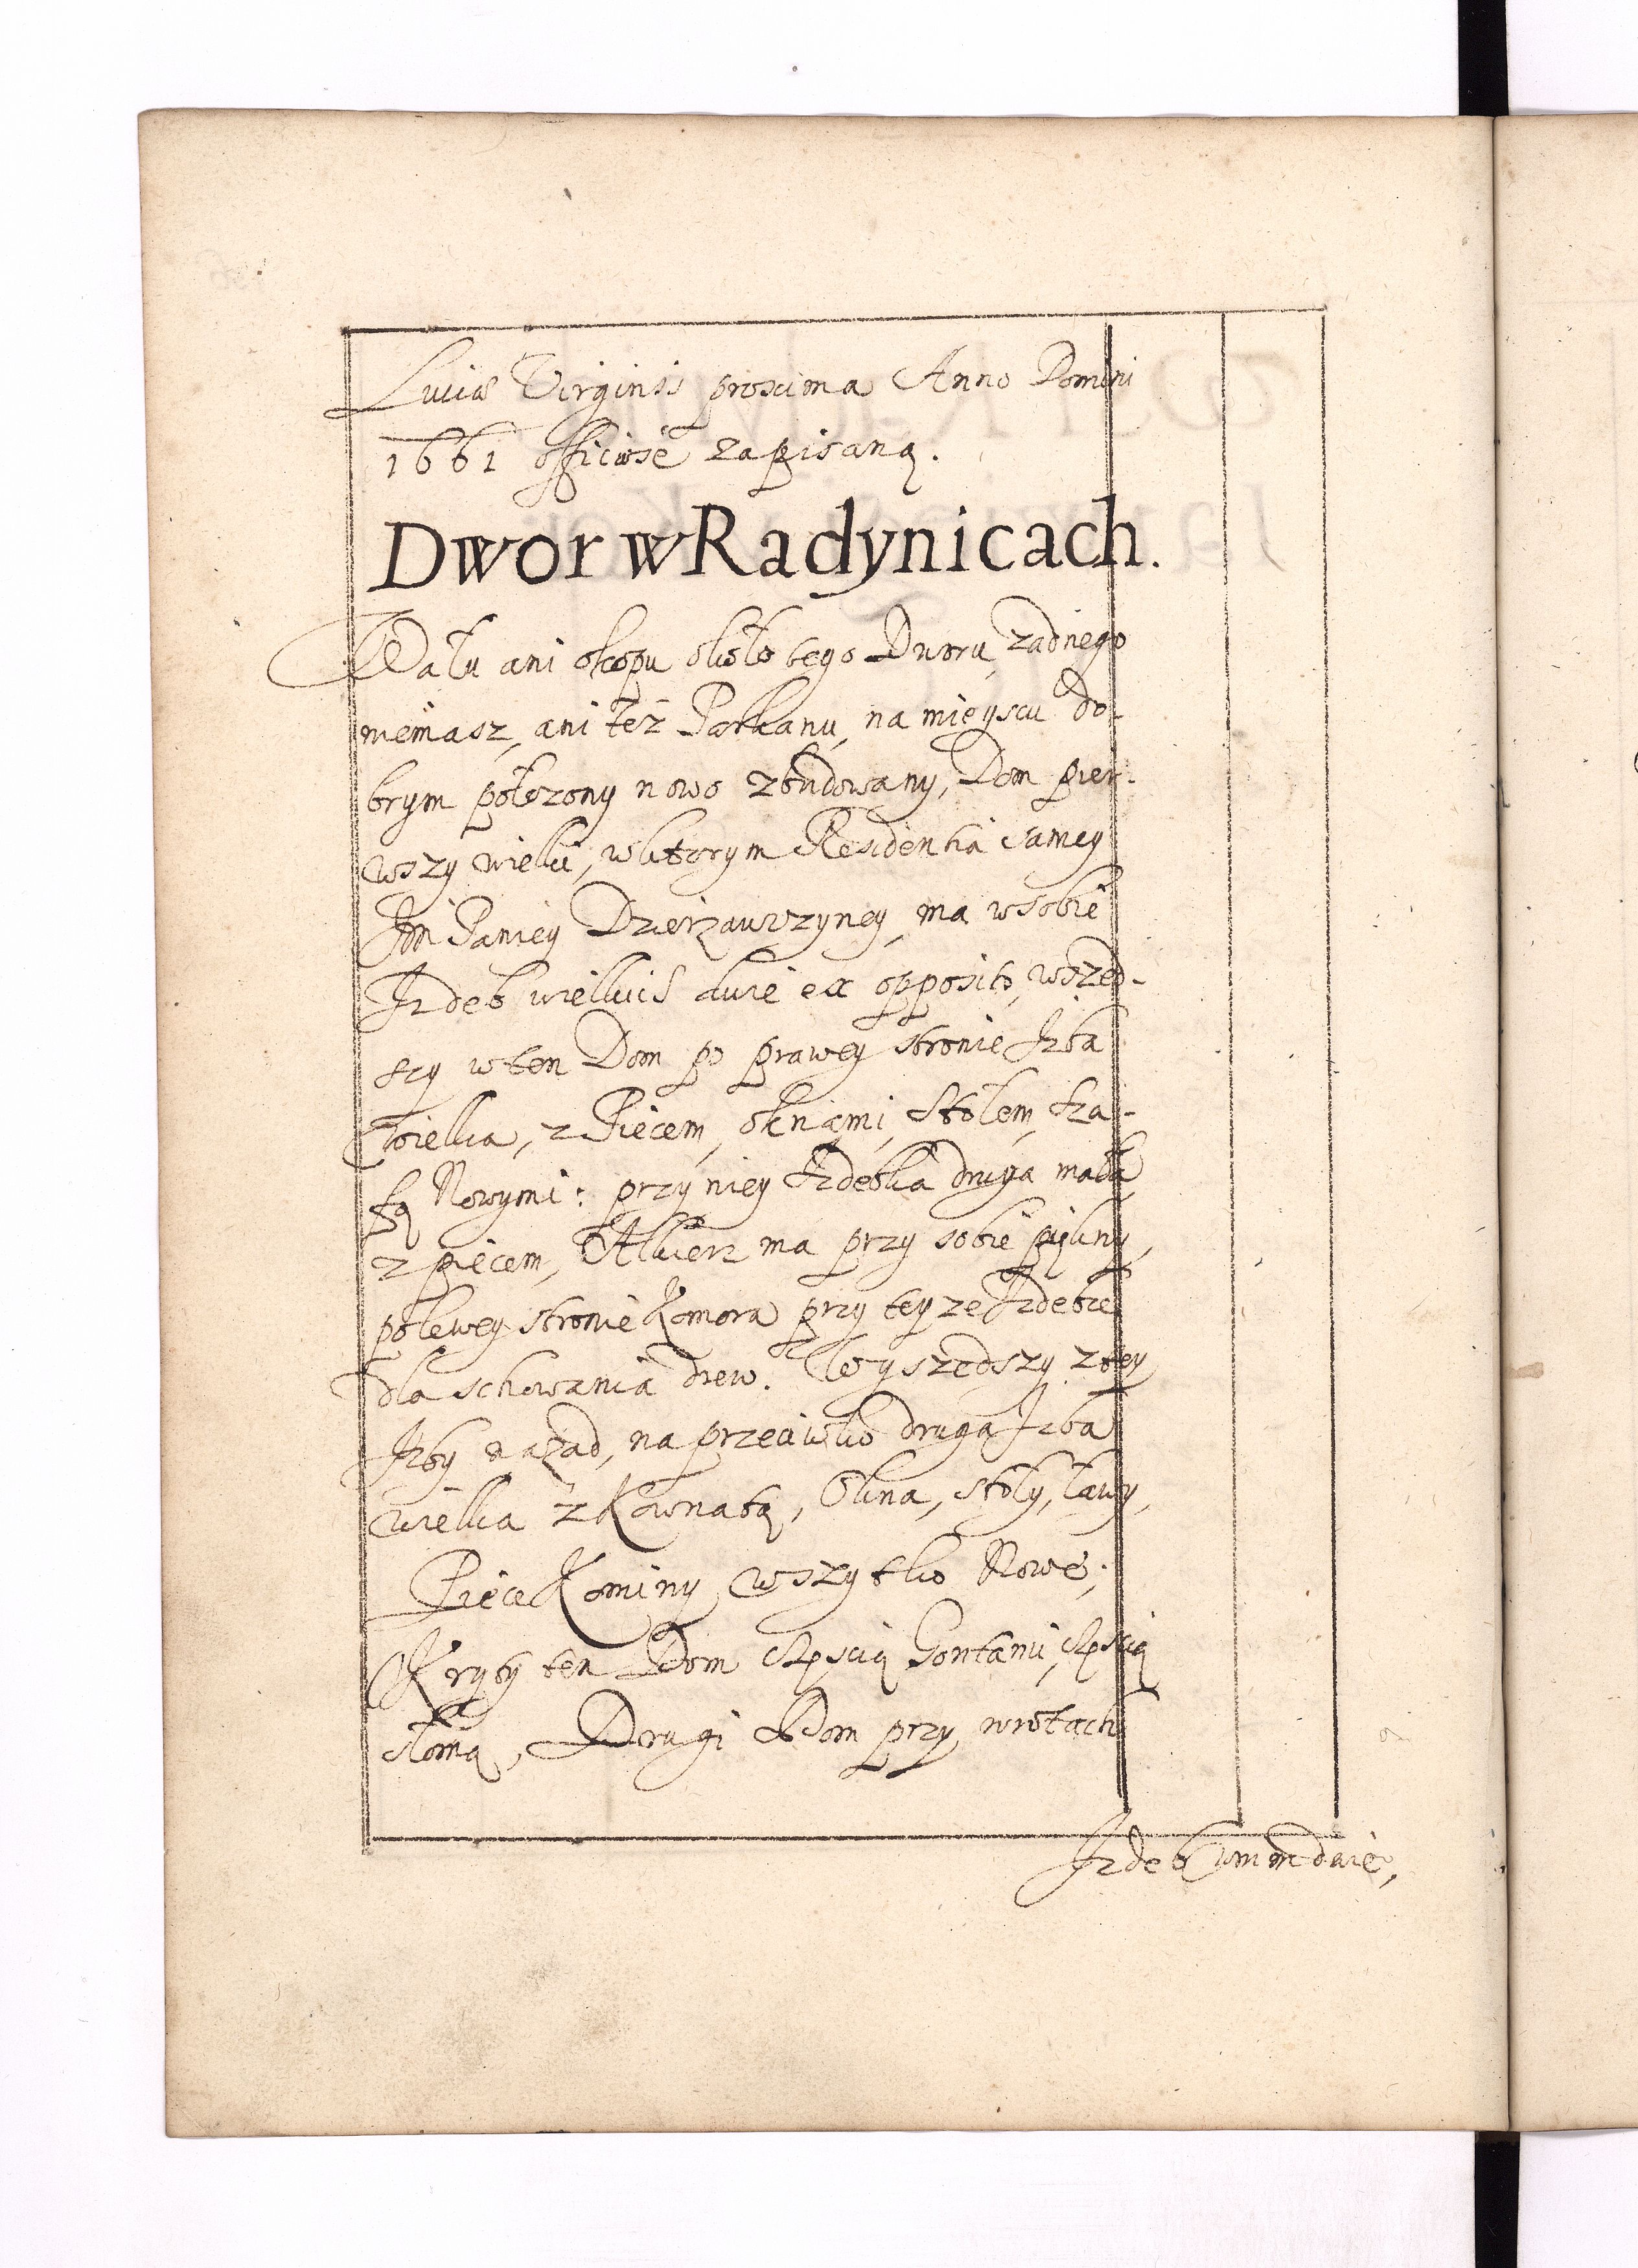 Luciæ Virginis proxima Anno Domini
1661 officiose zapisaną.
Dwor w Radynicach.
Wału ani okopu około tego Dworu, zadnego
niemasz, ani też Parkanu, na mieyscu do-
brym położony nowo zbudowany, Dom pier-
wszy wielki, wktorym Residentia samey
Jm Paniey Dzierzawczyney, ma wsobie
Jzdeb wielkich dwie ex opposito, wszed-
szy wten Dom po prawey stronie Jzba
Wielka, z Piecem, oknami, Stołem, Sza-
fą Nowymi: przy niey Jzdebka druga mała,
z piecem, Alkierz ma przy sobie piękny,
polewey stronie Komora przy teyze Jzdebie
dla schowania drew. Wyszedszy ztey
Jzby nazad, naprzeciwko druga Jzba
wielka z Kownatą, Okna, stoły, ławy,
Piece Kominy wszytko Nowe;
Kryty ten Dom częscią Gontami, częscią
słomą, Drugi Dom przy wrotach
Jzdeb wnim dwie,